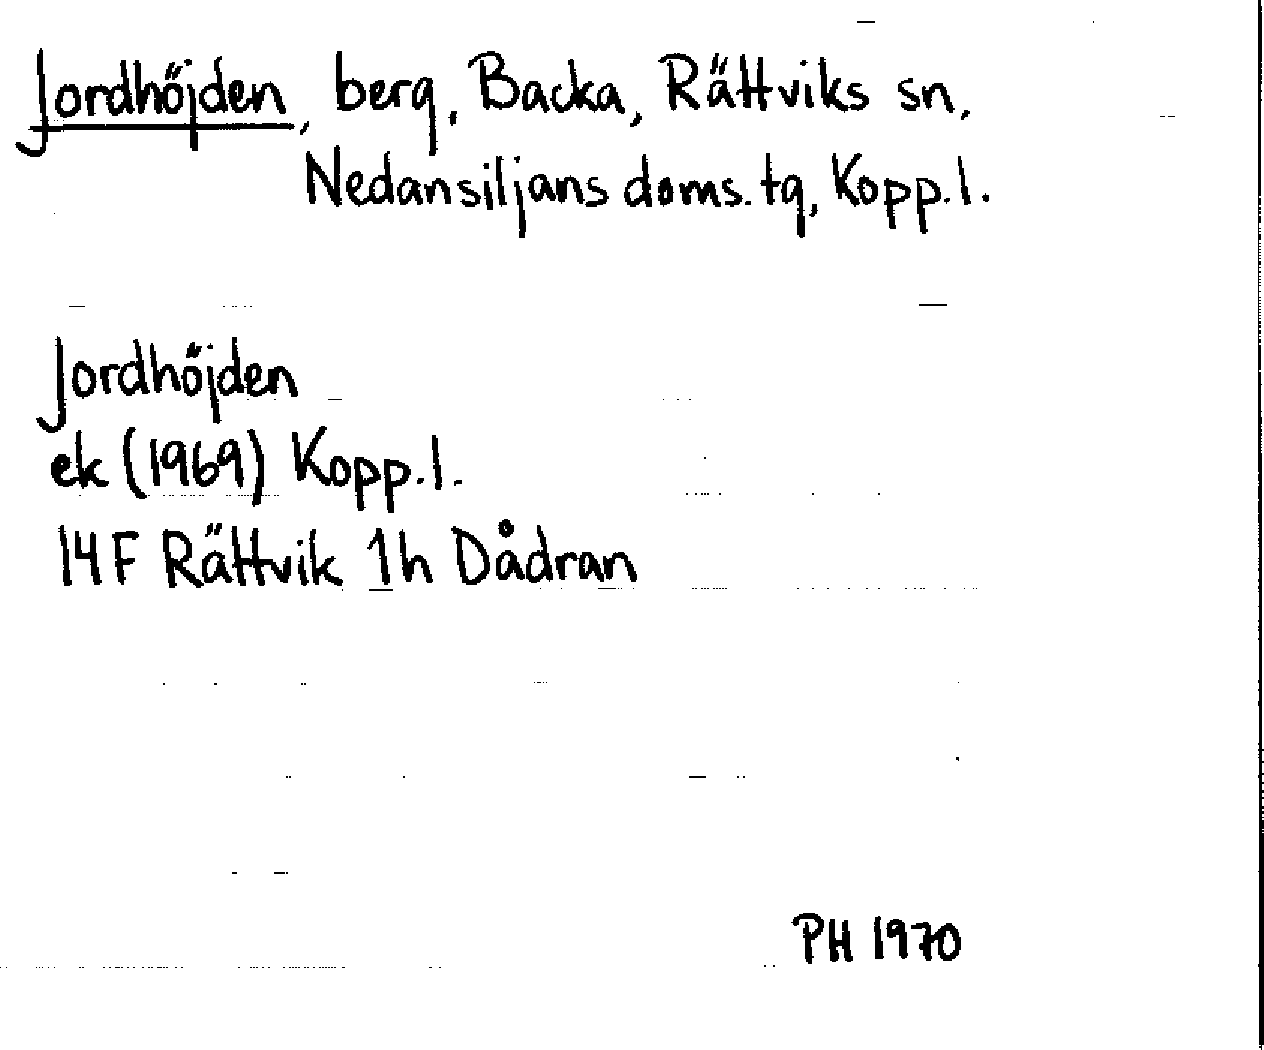 Jordhöjden, berg, Backa, Rättviks sn,
Nedansiljans doms. tg, Kopp. l.
Jordhöjden
ek (1969) Kopp. l.
14 F Rättvik 1h Dådran
PH 1970